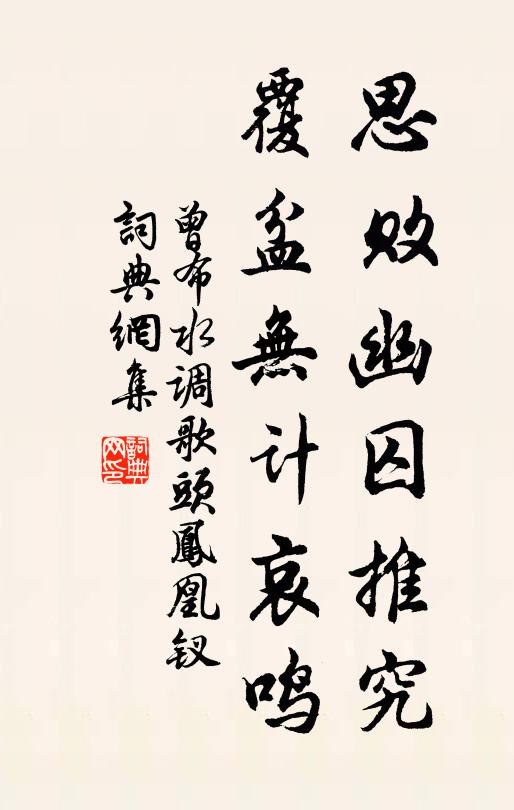 思败幽囚推究
覆盆無计哀鸣
曾布水调歌頭鳳凰钗
詞典網集
詞典网印